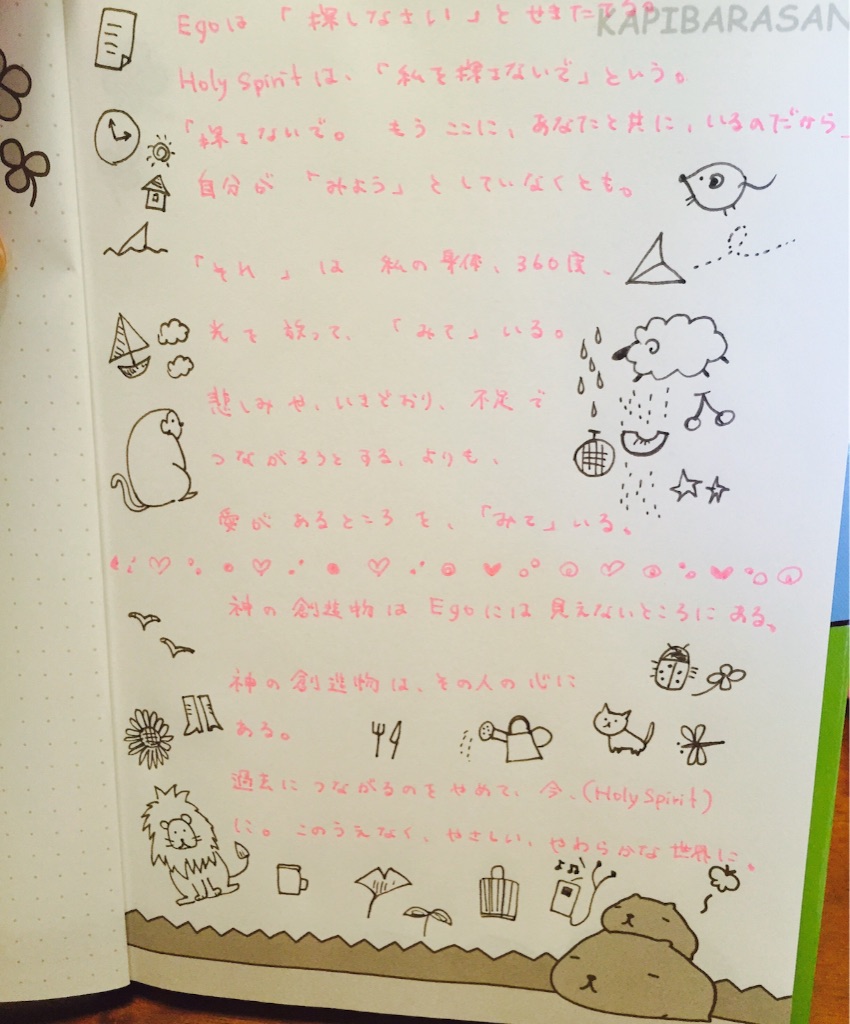 KAPIBARASAN
Egoは「探しなさい」とせきたてる。
Holy Spiritは、「私を探さないで」という。
「探さないで。もうここに、あなたと共に、いるのだから」
自分が「みよう」としていなくとも。
「それ」は私の身体、360度、
光を放って、「みて」いる。
悲しみや、いきどおり、不足で
つながろうとする、よりも、
愛があるところを、「みて」いる。
神の創造物はEgoには見えないところにある。
神の創造物は、その人の心に
ある。
過去につながるのをやめて、今、(Holy Spirit)
に。このうえなく、やさしい、やわらかな世界に。